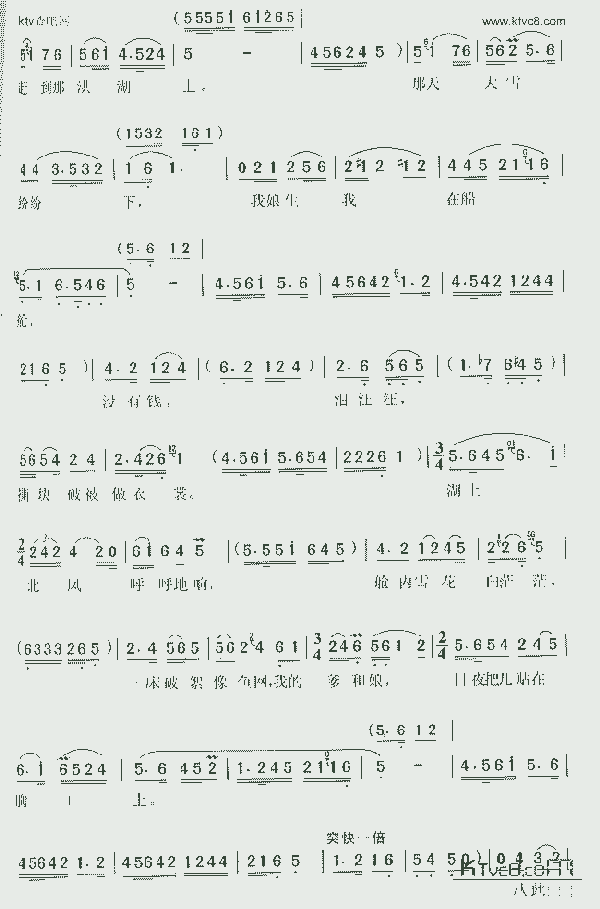 ktv www.ktvc8.com
(5 5 5 5 1 6 1 2 6 5
5 1 7 6 5 6 1 4. 5 2 4 5 - 4 5 6 2 4 5 ) 5 1 7 6 5 6 2 5. 6
赶 到那 洪 湖 上。 那天 大 雪
(1 5 3 2 1 6 1)
4 4 3. 5 3 2 1 6 1. 0 2 1 2 5 6 2 1 2 1 2 4 4 5 2 1 1 6
纷纷 下, 我娘生 我 在船
(5. 6 1 2
5. 1 6. 5 4 6 5 - 4. 5 6 1 5. 6 4 5 6 4 2 1. 2 4. 5 4 2 1 2 4 4
舱。
2 1 6 5 ) 4. 2 1 2 4 (6. 2 1 2 4 ) 2. 6 5 6 5 (1. 7 6 4 5 )
没 有 钱, 泪 汪 汪,
5 6 5 4 2 4 2. 4 2 6 1 (4. 5 6 1 5. 6 5 4 2 2 2 6 1 ) 3/4 5. 6 4 5 6. 1
撕块 破被 做 衣 裳。 湖 上
2/4 2 4 2 4 2 0 6 1 6 4 5 (5. 5 5 1 6 4 5 ) 4. 2 1 2 4 5 2 2 6 5
北 风 呼 呼地 响, 舱 内 雪 花 白茫 茫,
(6 3 3 3 2 6 5 ) 2. 4 5 6 5 5 6 2 4 6 1 3/4 2 4 6 5 6 1 2 2/4 5. 6 5 4 2 4 5
一床破 絮 像 鱼网,我的 爹 和 娘, 日 夜把儿 贴在
(5. 6 1 2
6. 1 6 5 2 4 5. 6 4 5 2 1. 2 4 5 2 1 1 6 5 - 4. 5 6 1 5. 6
胸 口 上。
突快一倍
4 5 6 4 2 1. 2 4 5 6 4 2 1 2 4 4 2 1 6 5 1. 2 1 6 5 4 5 0) 0 4 3 2
KTvc8.com